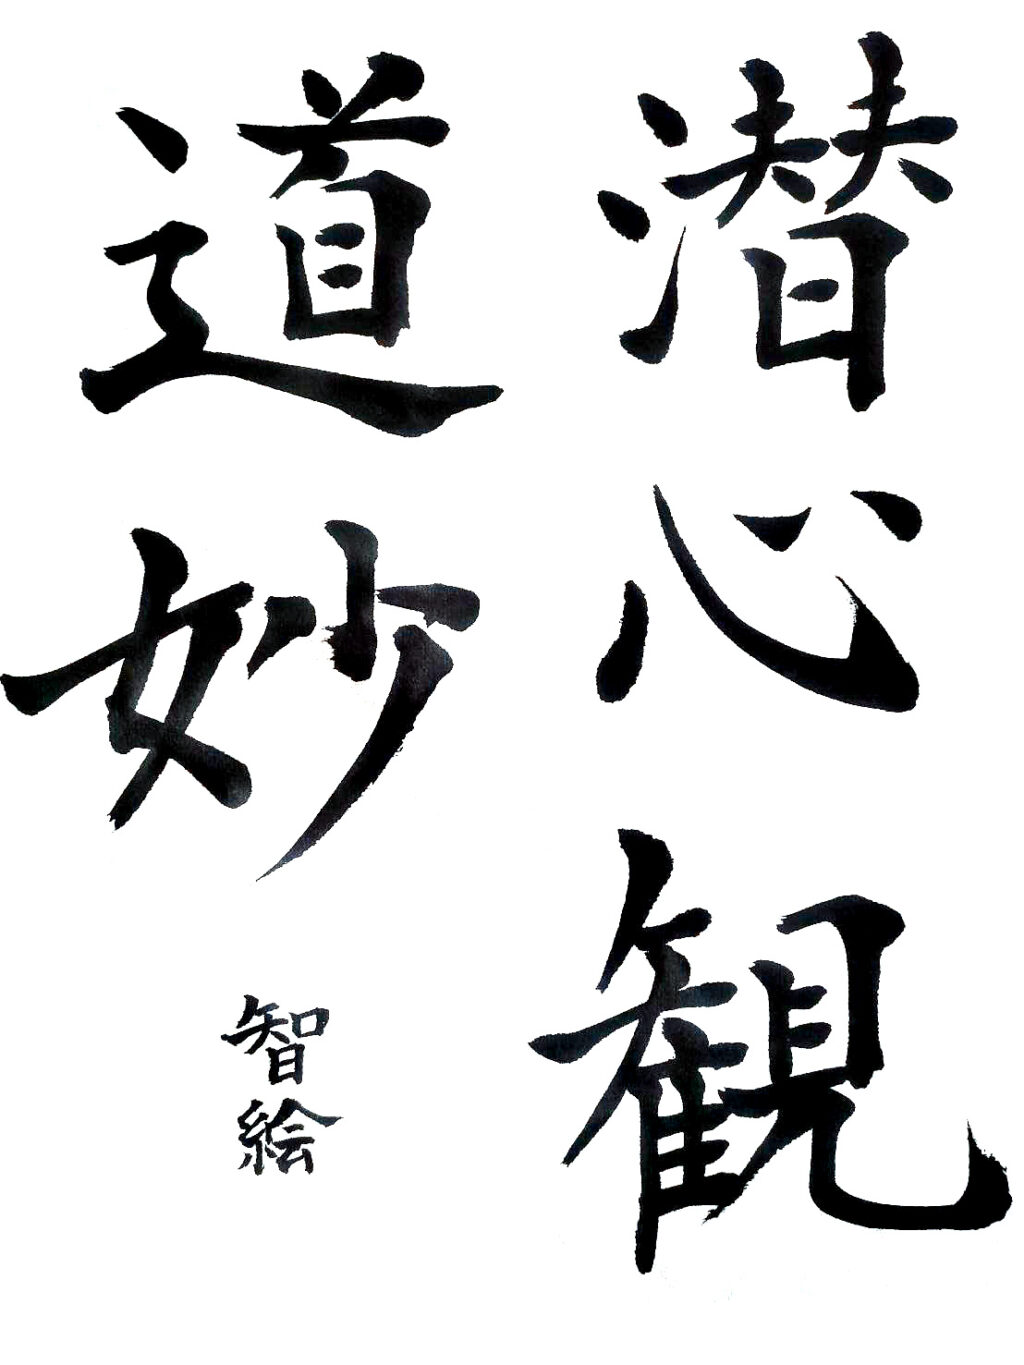 潜心観
道妙
智絵